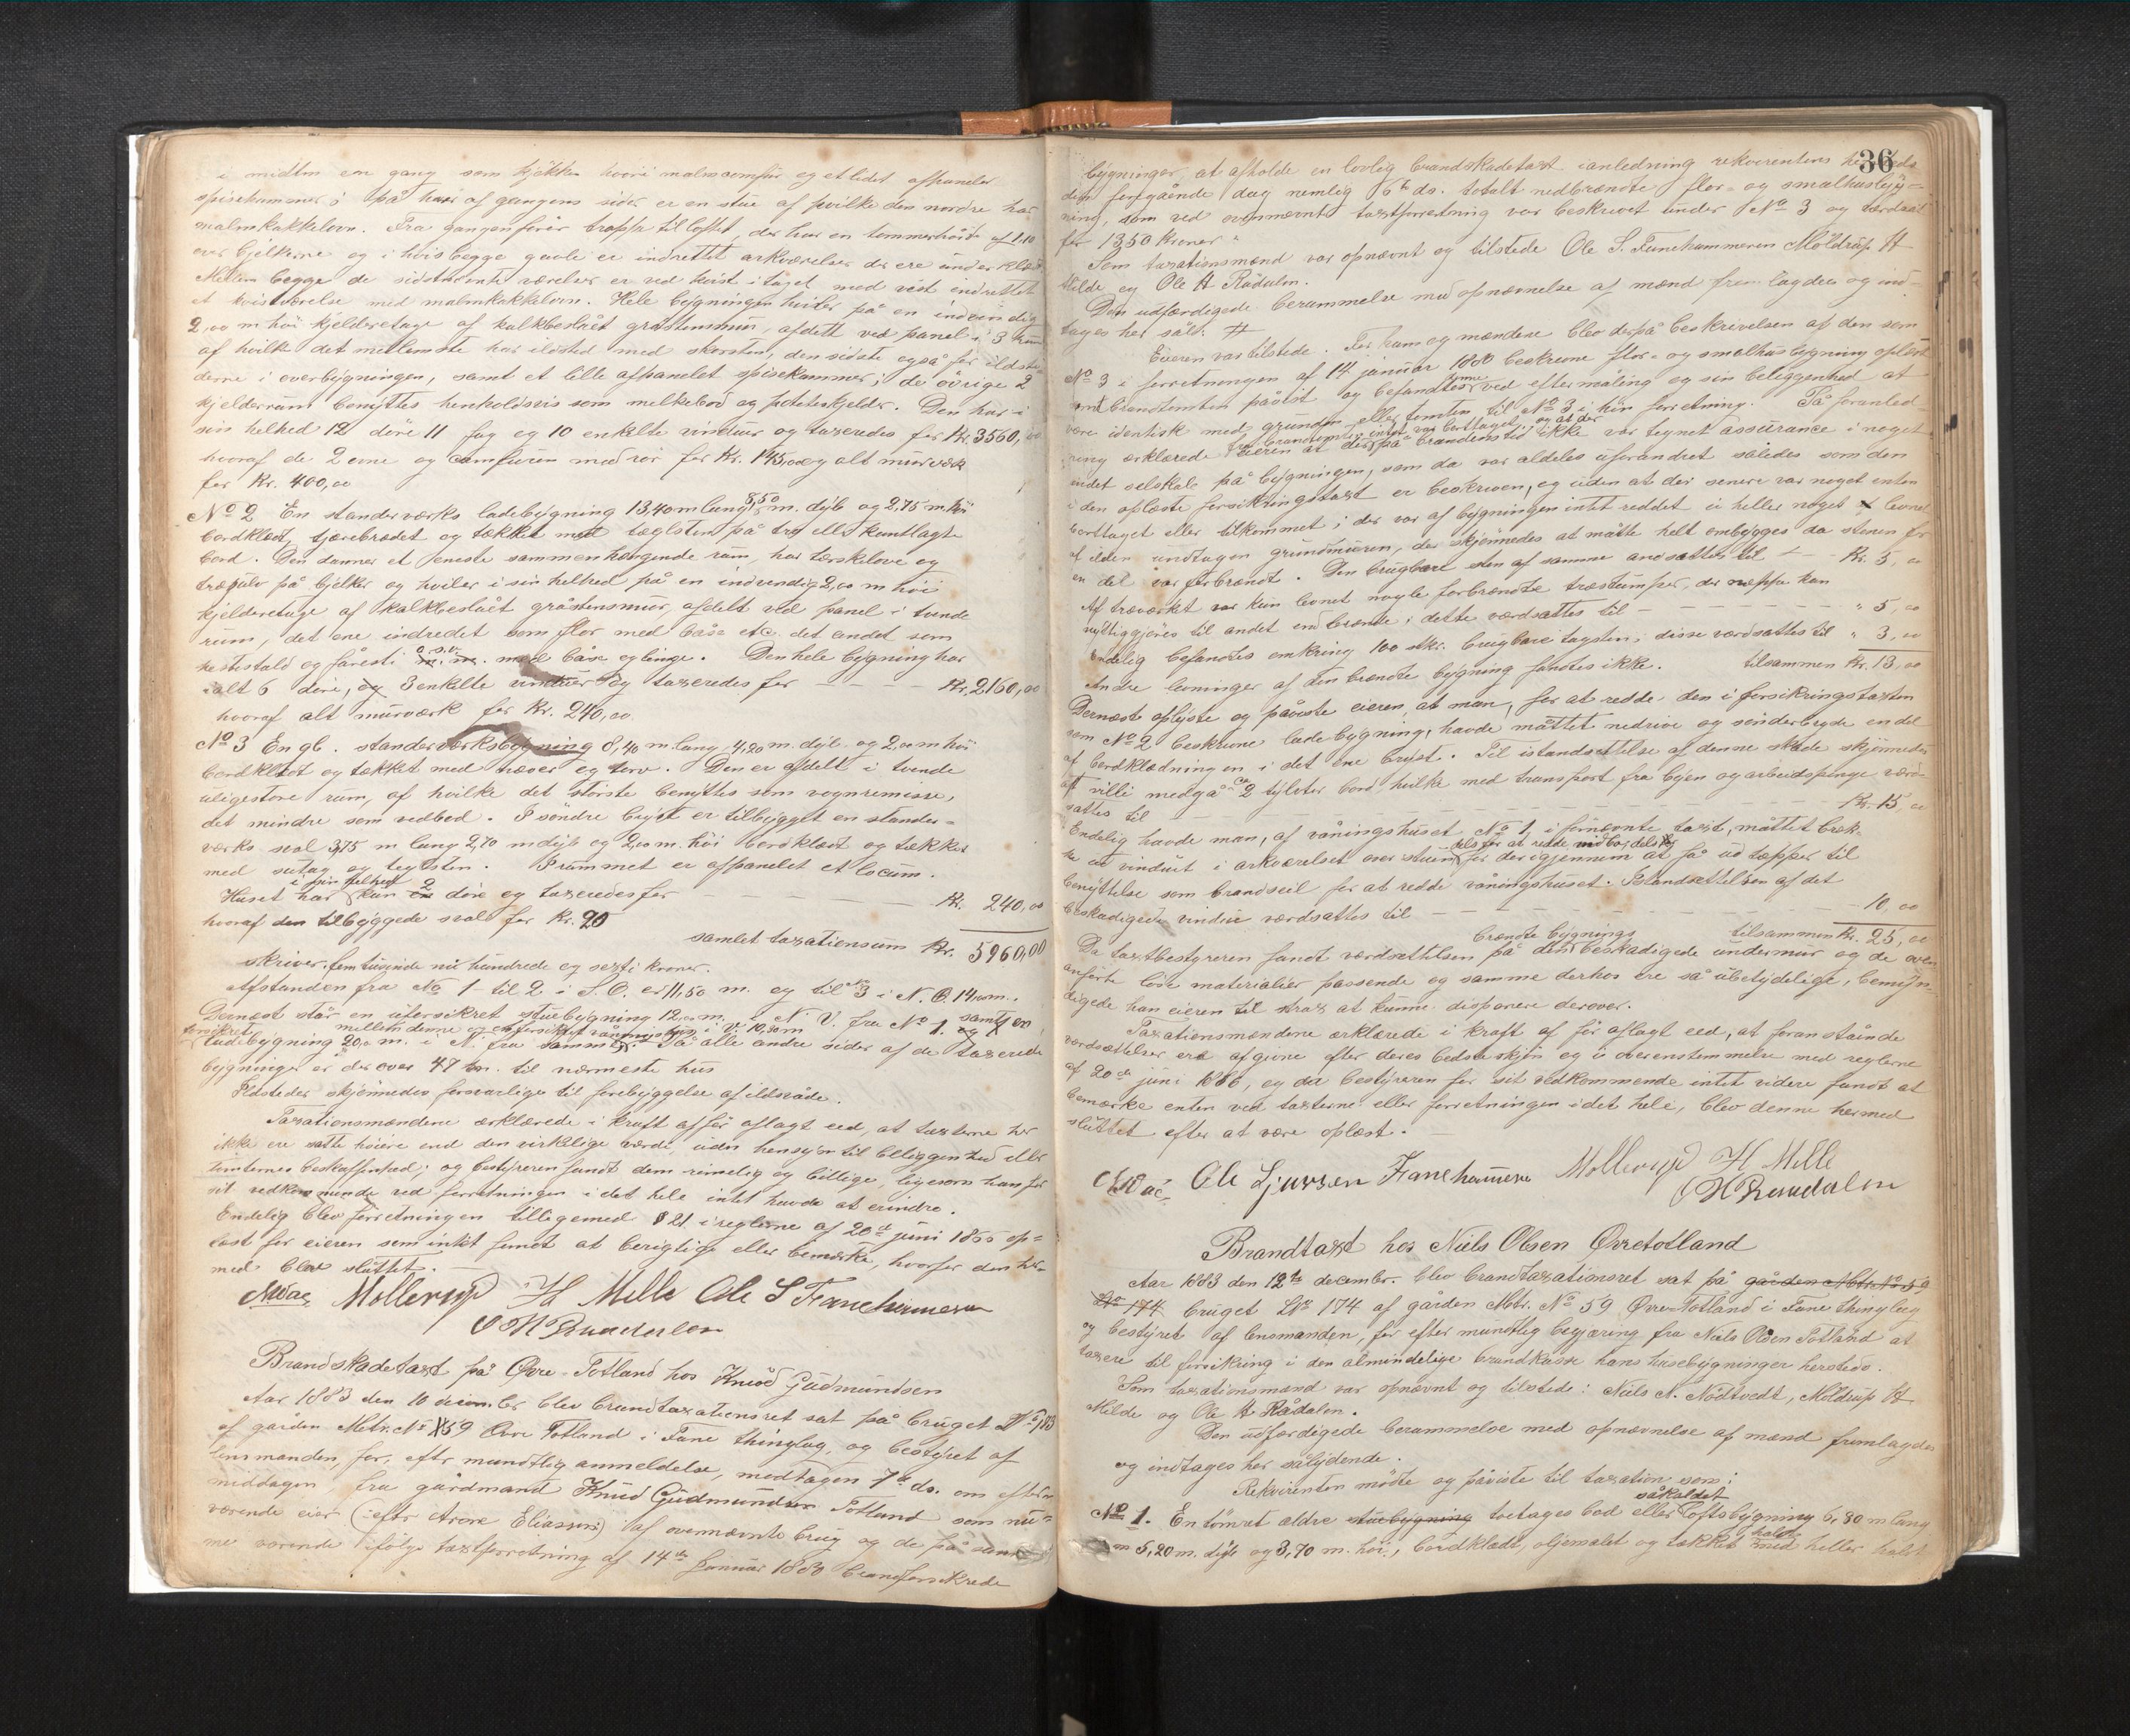 i midten en gang som kjøkken hvori malmcomfur og et lidet afpanelet
spisekammer; på hver af gangens sider er en stue af hvilke den nordre har
malmkakkelovn. Fra gangen fører trappe til loftet, der har en tømmerhøide af 1,10
over bjelkerne og i hvis begge gavle er indrettet arkværelser der ere underklædt
Mellem begge de sidstnævnte værelser er ved kvist i taget med vest indrettet
et kvistværelse med malmkakkelovn. Hele bygningen hviler på en indvendig
2,00 m høi kjelderetage af kalkbeslået gråstensmur, afdelt ved panel i 3 rum
af hvilke det mellemste har ildsted med skorsten, den sidste også for ildste-
derne i overbygningen, samt et lille afpanelet spisekammer; de øvrige 2
kjelderrum benyttes henholdsvis som melkebod og poteteskjelder. Den har i
sin helhed 12 døre 11 fag og 10 enkelte vinduer og taxeredes for Kr. 3560,00
hvoraf de 2 ovne og comfuren med rør for Kr. 145,00 og alt murværk
for Kr. 400,00
No 2 En standerværks ladebygning 13,40 m lang 8,50 m. dyb og 2,75 m høi
bordklædt, tjærebrædet og tækket med taglsten på tro eller kantlagte
bord. Den danner et eneste sammenhængende rum, har tærskelove og
trægulv på bjelker og hviler i sin helhed på en indvendig 2,00 m høi
kjelderetage af kalkbeslået gråstensmur, afdelt ved panel i tvende
rum, det ene indredet som flor med båse etc. det andet som
hestestald og fåresti o.s.v. med båse og binge. Den hele bygning har
ialt 6 døre, og 3 enkelte vinduer og taxeredes for — — — Kr. 2160,00
hvoraf alt murværk for Kr. 240,00
No 3 En gl. standerværksbygning 8,40 m. lang 4,20 m. dyb og 2,00 m høi
bordklædt og tækket med næver og torv. Den er afdelt i tvende
uligestore rum, af hvilke det største benyttes som vognremisse,
det mindre som vedbod. I søndre bryst er tilbygget en stander-
værks sval 3,75 m lang 2,70 m dyb og 2,00 m. høi bordklædt og tækket
med sutag og teglsten. I rummet er afpanelet et locum.
Huset har i sin helhed kun 2 døre og taxeredes for — — — Kr. 240,00
hvoraf den tilbyggede sval for Kr. 20
samlet taxationssum Kr. 5960,00
skriver fem tusinde ni hundrede og sexti kroner.
Afstanden fra No 1 til 2 i S.O. er 11,50 m. og til No 3 i N.O. 14,00 m.
Dernæst står en uforsikret stuebygning 12,00 m. i N.V. fra No 1. samt en
forsikret mellem denne og en forsikret våningsbygn i V. 10,30 m
ladebygning 20,00 m. i N. fra samme. På alle andre sider af de taxerede
bygninger er der over 47 m. til nærmeste hus
Ildsteder skjønnedes forsvarlige til forebyggelse af ildsvåde.
Taxationsmændene erklærede i kraft af før aflagt eed, at taxterne her
ikke ere satte høiere end den virkelige værdi, uden hensyn til beliggenhed eller
tomternes beskaffenhed; og bestyreren fandt dem rimelig og billige, ligesom han for
sit vedkommende ved forretningen i det hele intet havde at erindre.
Endelig blev forretningen tilligemed § 21 i reglerne af 20de juni 1866 op-
læst for eieren som intet fandt at berigtige eller bemærke, hvorfor den her-
med blev sluttet.
Mollerup H Milde Ole S Fanehammeren
O H Raadalen
Brandskadetaxt på Øvre-Totland hos Knud Gudmundsen
Aar 1883 den 10 decembr. blev brandtaxationsret sat på bruget LNo 173
af gården Matr. No 59 Øvre Totland i Fane thinglag, og bestyret af
lensmanden, for, efter mundtlig anmeldelse, modtagen 7de ds. om efter-
middagen, fra gårdmand Knud Gudmundsen Totland som nu-
værende eier (efter Arone Eliassen) af ovennævnte brug og de på sam-
me værende ifølge taxtforretning af 14de Januar 1880 brandforsikrede
36
bygninger, at afholde en lovlig brandskadetaxt i anledning rekvirentens
den foregående dag nemlig 6te ds. totalt nedbrændte flor- og smalhusbyg-
ning, som ved ovennævnte taxtforretning var beskrevet under No 3 og værdsat
for 1350 kroner
Som taxationsmænd var opnævnt og tilstede Ole S. Fanehammeren Möldrup H
Milde og Ole H Rådalen.
Den udfærdigede berammelse med opnævnelse af mænd fremlagdes og ind-
tages her sål.
Eieren var tilstede. For ham og mændene blev derpå beskrivelsen af den som
No 3 i forretningen af 14 januar 1880 beskrevne flor- og smalhusbygning oplæst
med brandtomten påvist og befandtes denne ved eftermåling og sin beliggenhed at
være identisk med grunden eller tomten til No 3 i hin forretning. På foranled-
ning erklærede eieren at der på brandens tid ikke var tegnet assurance i noget
andet selskab på bygningen, som da var aldeles uforandret således som den
i den oplæste forsikringstaxt er beskreven, og uden at der senere var noget enten
borttaget eller tilkommet; der var af bygningen intet reddet ei heller noget levnet
af ilden undtagen grundmuren, der skjønnedes at måtte helt ombygges da stenen for
en del var forbrændt. Den brugbare sten af samme ansattes til — Kr. 5,00
Af træværket var kun levnet nogle forbrændte træstumper, der neppe kan
nyttiggjøres til andet end brænde; dette værdsattes til — — — " 5,00
Endelig befandtes omkring 100 stkr. brugbare tagsten; disse værdsattes til " 3,00
Andre levninger af den brændte bygning fandtes ikke. tilsammen Kr. 13,00
Dernæst oplyste og påviste eieren, at man, for at redde den i forsikringstaxten
som No 2 beskrevne ladebygning, havde måttet nedrive og sønderbryde en del
af bordklædningen i det ene bryst. Til istandsættelse af denne skade skjønnedes
at ville medgå ca 2 tylvter bord hvilke med transport fra byen og arbeidspenge værd-
sattes til — — — Kr. 15,00
Endelig havde man, af våningshuset No 1 i fornævnte taxt, måttet bræk-
ke et vindue i arkværelset over stuen for derigjennem at få ud tæpper til
benyttelse som brandseil for at redde våningshuset. Istandsættelsen af det
beskadigede vindue værdsattes til — — — 10,00
tilsammen Kr. 25,00
Da taxtbestyreren fandt værdsættelsen på den brændte bygnings beskadigede undermur og de oven-
anførte løse materialier passende og samme derhos ere så ubetydelige, bemyn-
digede han eieren til strax at kunne disponere derover.
Taxationsmændene erklærede i kraft af før aflagt eed, at foranstående
værdsættelser ere afgivne efter deres bedste skjøn og i overenstemmelse med reglerne
af 20de juni 1866, og da bestyreren for sit vedkommende intet videre fandt at
bemærke enten ved taxterne eller forretningen i det hele, blev denne hermed
sluttet efter at være oplæst.
Ole Sjursen Fanehammeren Mollerup H Milde
O H Raadalen
Brandtaxt hos Niels Olsen Øvretotland
Aar 1883 den 12te decembr. blev brandtaxationsret sat på gården Matr. No 59
LNo 174 bruget LNo 174 af gården Mtr. No 59 Øvre Totland i Fane thinglag
og bestyret af lensmanden, for efter mundtlig begjæring fra Niels Olsen Totland at
taxere til forsikring i den almindelige brandkasse hans husebygninger hersteds.
Som taxationsmænd var opnævnt og tilstede: Niels N. Nödtvedt, Möldrup H
Milde og Ole H Rådalen.
Den udfærdigede berammelse med opnævnelse af mænd fremlagdes
og indtages her sålydende.
Rekvirenten mødte og påviste til taxation som:
No 1. En tømret ældre stuebygning toetages bod eller såkaldet Loftsbygning 6,80 m lang
5,20 m. dyb og 3,70 m. høi, bordklædt, oljemalet og tækket halvt med heller halvt